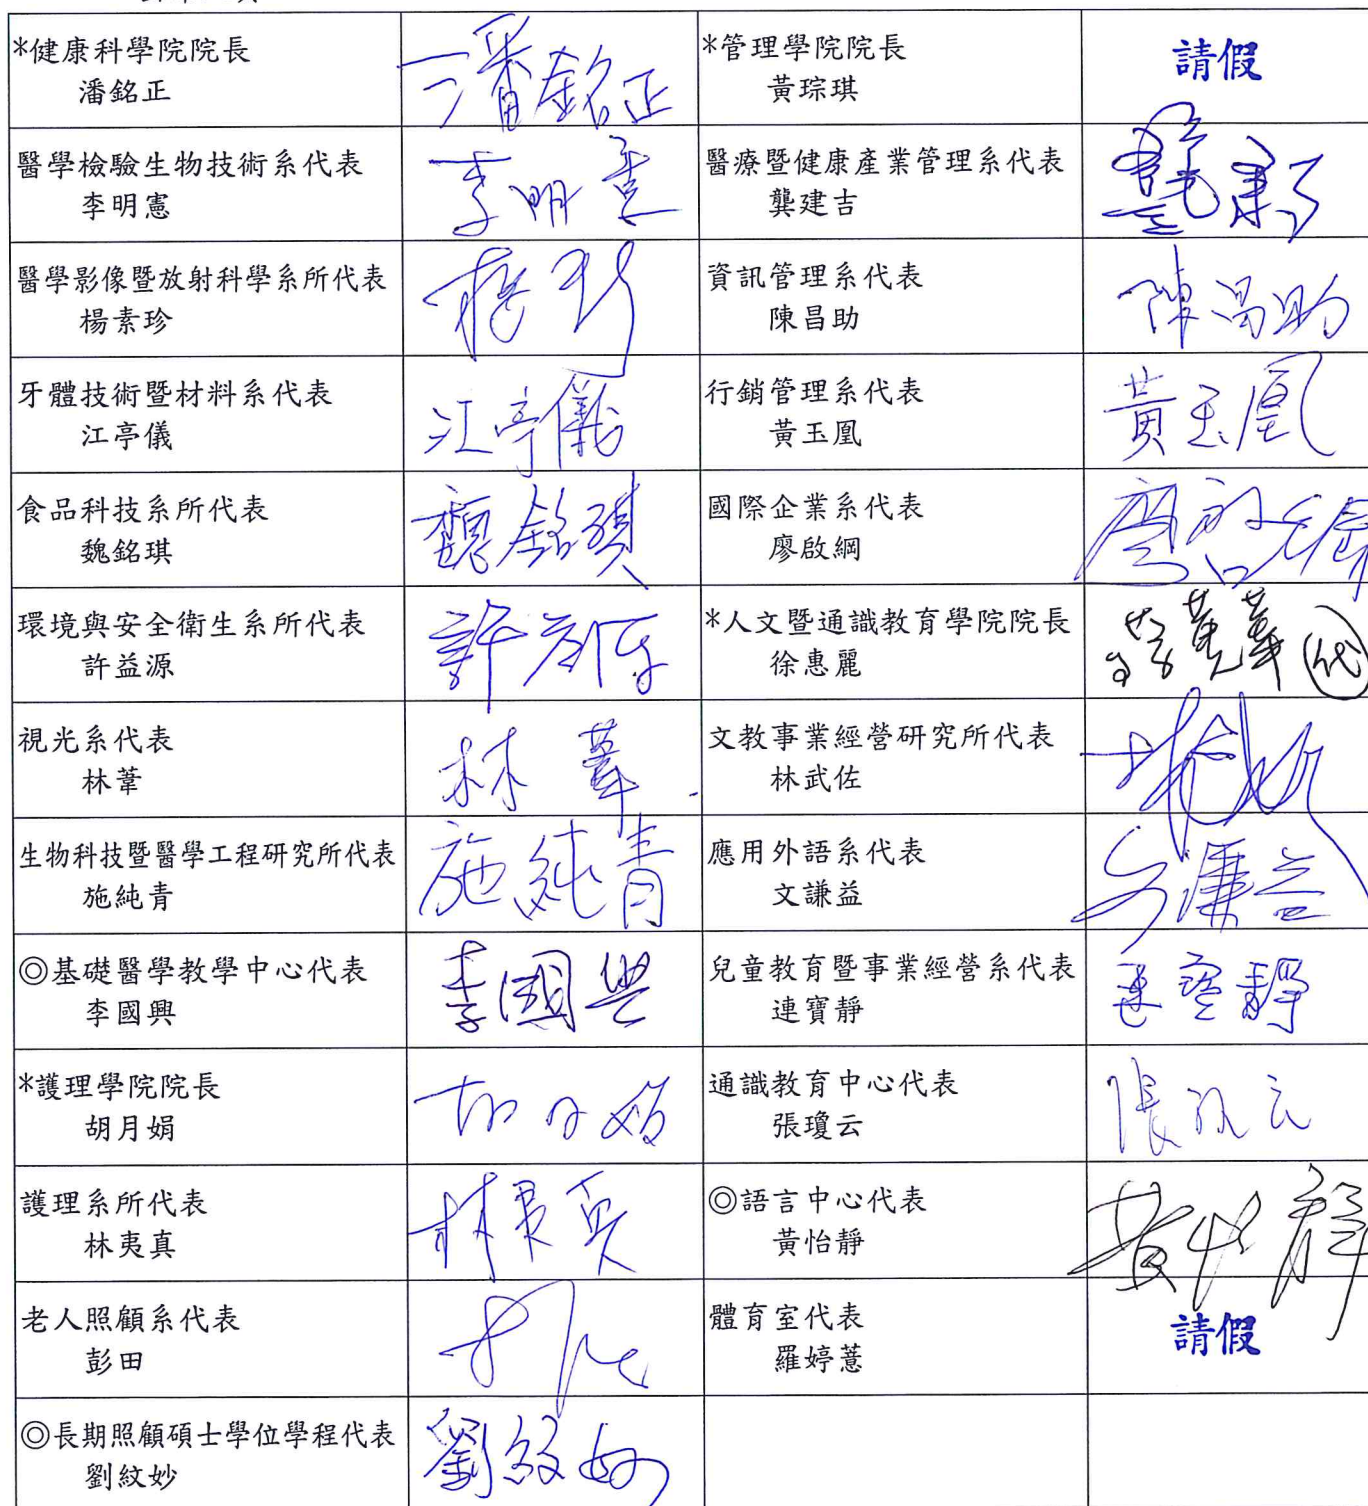 *健康科學院院長
潘銘正
潘銘正
*管理學院院長
黃琮琪
請假
醫學檢驗生物技術系代表
李明憲
李明憲
醫療暨健康產業管理系代表
龔建吉
醫學影像暨放射科學系所代表
楊素珍
資訊管理系代表
陳昌助
陳昌助
牙體技術暨材料系代表
江亭儀
江亭儀
行銷管理系代表
黃玉凰
黃玉凰
食品科技系所代表
魏銘琪
魏銘琪
國際企業系代表
廖啟綱
環境與安全衛生系所代表
許益源
許益源
*人文暨通識教育學院院長
徐惠麗
代
視光系代表
林葦
林葦
文教事業經營研究所代表
林武佐
生物科技暨醫學工程研究所代表
施純青
施純青
應用外語系代表
文謙益
文謙益
◎基礎醫學教學中心代表
李國興
李國興
兒童教育暨事業經營系代表
連寶靜
連寶靜
*護理學院院長
胡月娟
胡月娟
通識教育中心代表
張瓊云
張瓊云
護理系所代表
林夷真
林夷真
◎語言中心代表
黃怡靜
黃怡靜
老人照顧系代表
彭田
體育室代表
羅婷薏
請假
◎長期照顧碩士學位學程代表
劉紋妙
劉紋妙